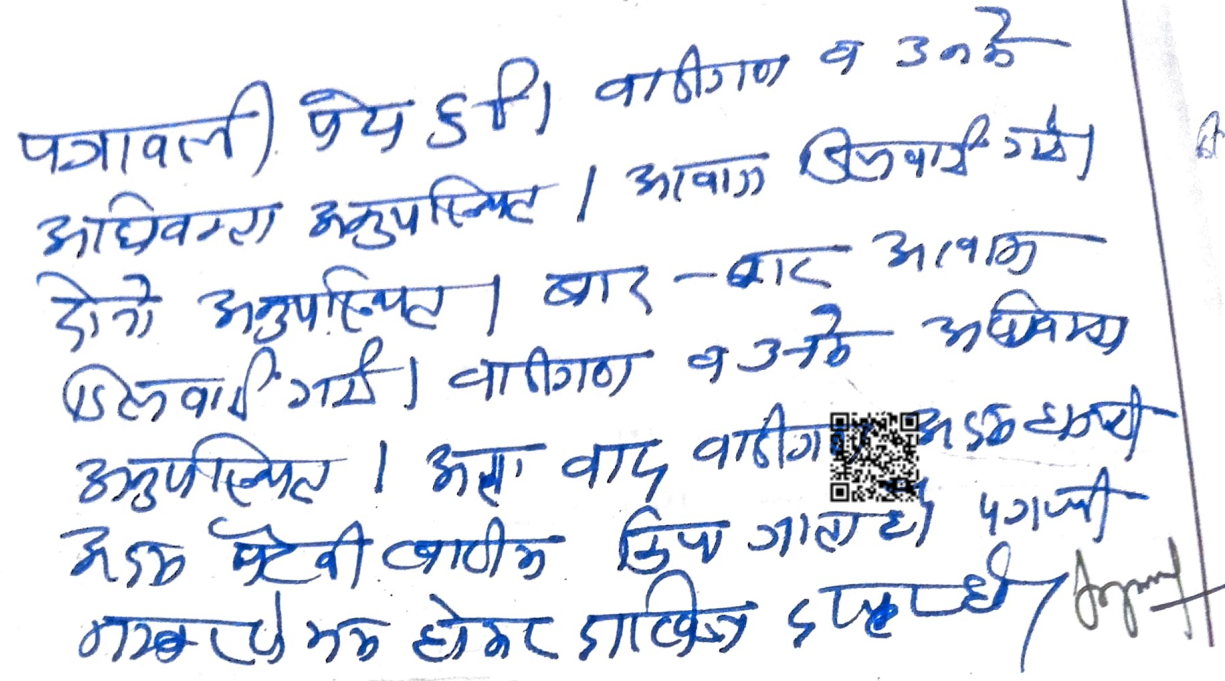 पत्रावली पेश हुई। वादीगण व उनके
अधिवक्ता अनुपस्थित। आवाज दिलवाई गई।
दोनो अनुपस्थित। बार-बार आवाज
दिलवाई गई। वादीगण व उनके अधिवक्ता
अनुपस्थित। अतः वाद वादीगण अदम हाजरी
अदम पैरवी खारीज किया जाता है। पत्रावली
होकर दाखिल दफ्तर हो।